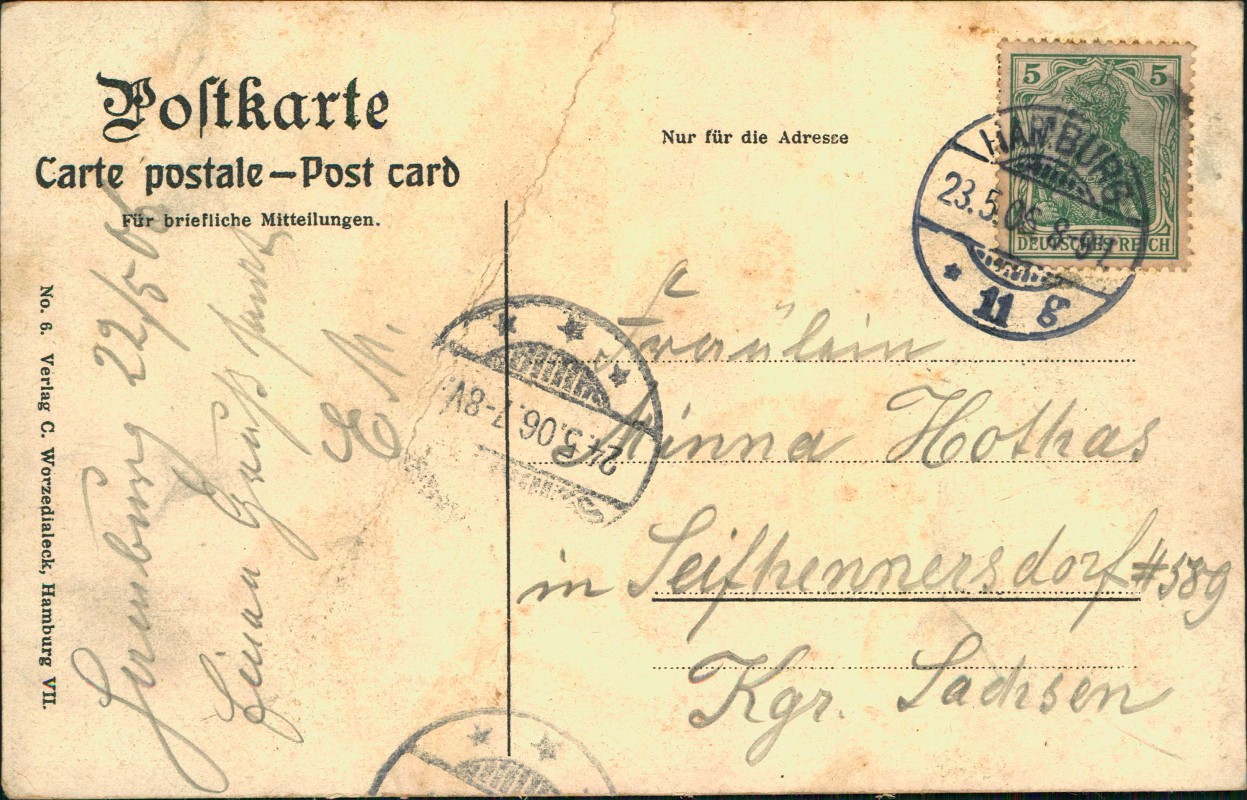 Postkarte
Carte postale—Post card
Für briefliche Mitteilungen.
No. 6. Verlag C. Worzedialeck, Hamburg VII.
Hamburg 22/5 06
Gruß sendet
E. M.
Nur für die Adresse
5 5
DEUTSCHES REICH
HAMBURG
23.5.06 8-9V
* 11 g
24.5.06. 7-8V.
Fräulein
Minna Hothas
in Seifhennersdorf #589
Kgr. Sachsen